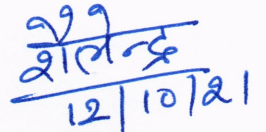 शैलेन्द्र
12/10/21